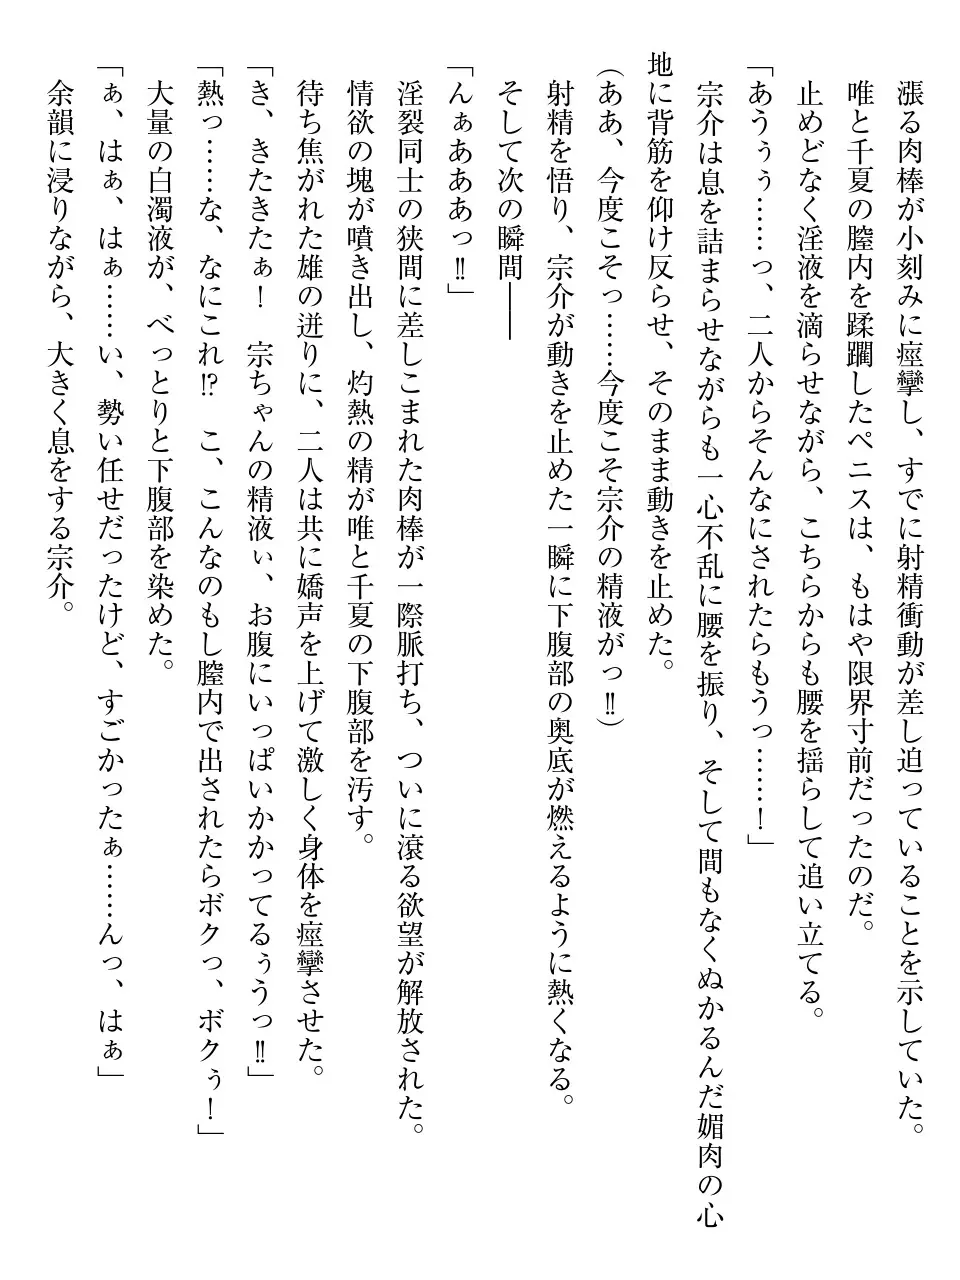 漲る肉棒が小刻みに痙攣し、すでに射精衝動が差し迫っていることを示していた。
唯と千夏の膣内を蹂躙したペニスは、もはや限界寸前だったのだ。
止めどなく淫液を滴らせながら、こちらからも腰を揺らして追い立てる。
「あうぅぅ……っ、二人からそんなにされたらもうっ……！」
宗介は息を詰まらせながらも一心不乱に腰を振り、そして間もなくぬかるんだ媚肉の心
地に背筋を仰け反らせ、そのまま動きを止めた。
（ああ、今度こそっ……今度こそ宗介の精液がっ‼）
射精を悟り、宗介が動きを止めた一瞬に下腹部の奥底が燃えるように熱くなる。
そして次の瞬間――
「んぁあああっ‼」
淫裂同士の狭間に差しこまれた肉棒が一際脈打ち、ついに滾る欲望が解放された。
情欲の塊が噴き出し、灼熱の精が唯と千夏の下腹部を汚す。
待ち焦がれた雄の迸りに、二人は共に嬌声を上げて激しく身体を痙攣させた。
「き、きたきたぁ！　宗ちゃんの精液ぃ、お腹にいっぱいかかってるぅうっ‼」
「熱っ……な、なにこれ⁉　こ、こんなのもし膣内で出されたらボクっ、ボクぅ！」
大量の白濁液が、べっとりと下腹部を染めた。
「ぁ、はぁ、はぁ……い、勢い任せだったけど、すごかったぁ……んっ、はぁ」
余韻に浸りながら、大きく息をする宗介。